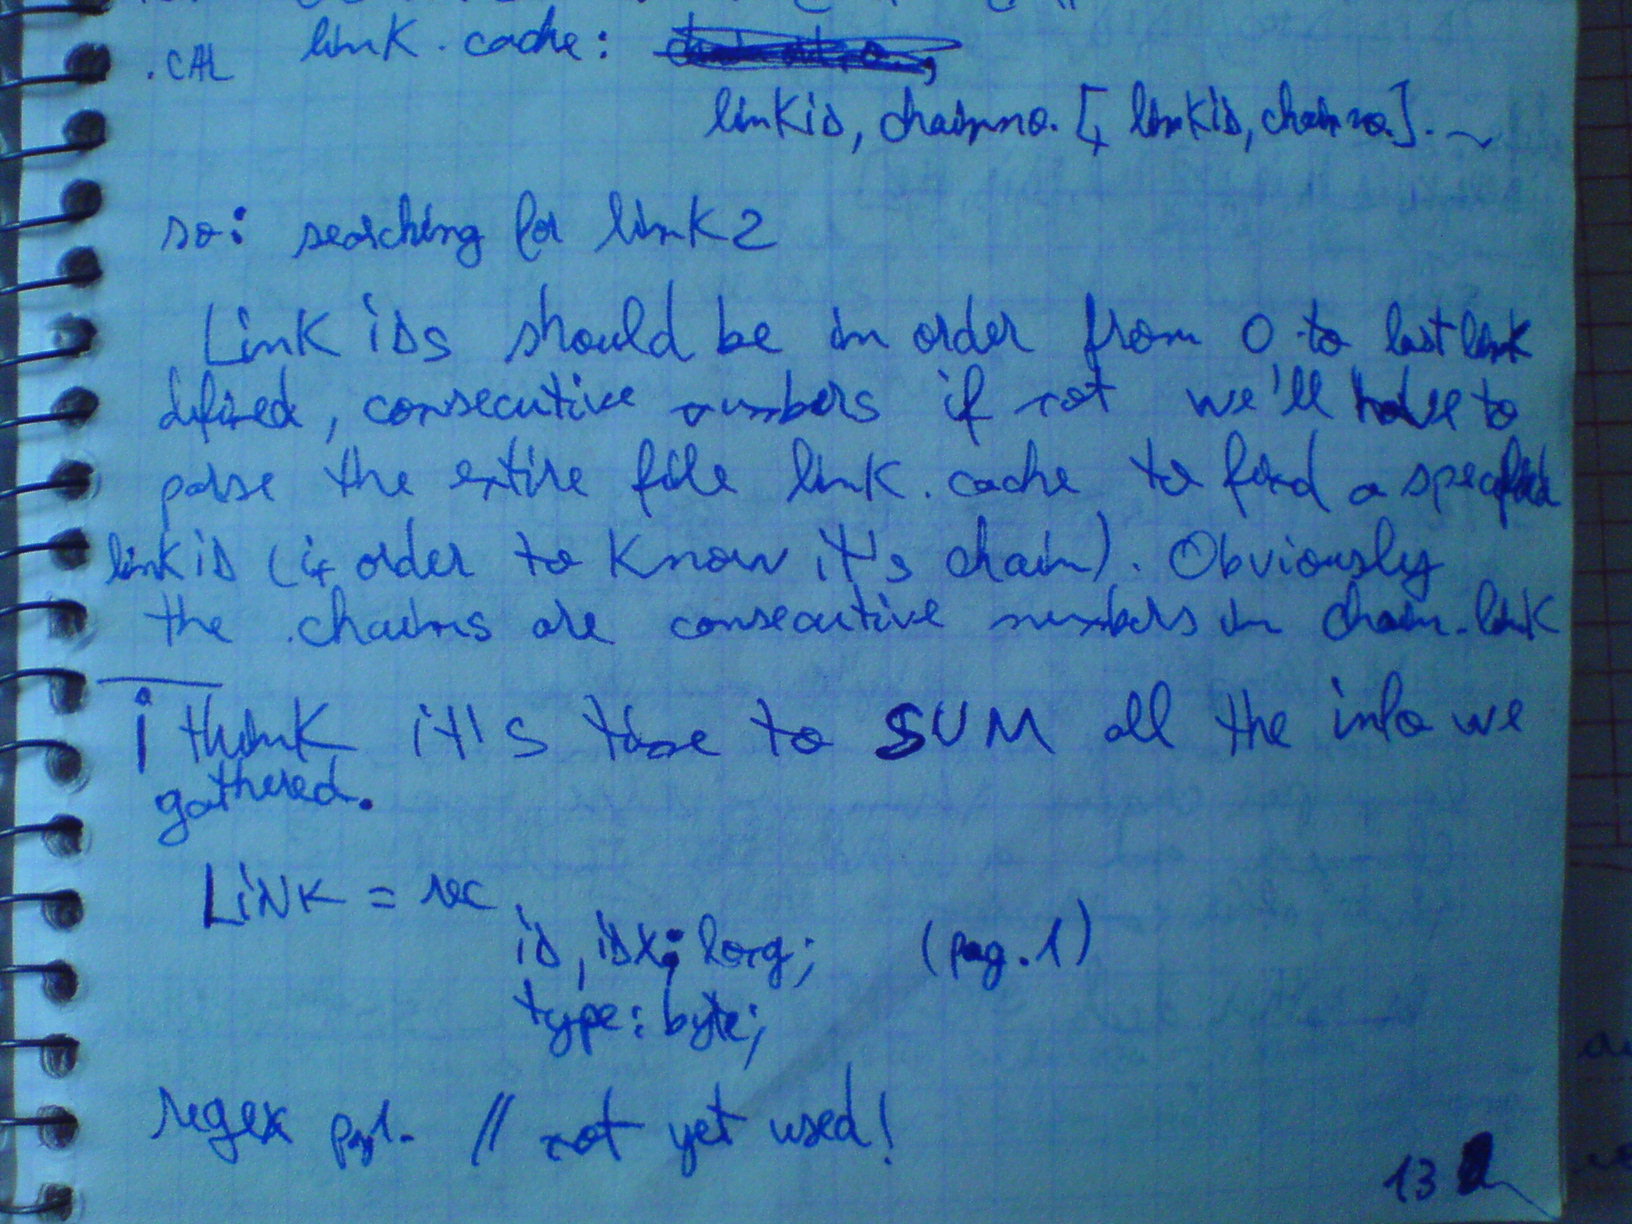 .CAL link.cache:
linkid, chainno. [, linkid, chainno.].
so: searching for link2
Link ids should be in order from 0 to last link
defined, consecutive numbers if not we'll have to
parse the entire file link.cache to find a specified
linkid (in order to know it's chain). Obviously
the chains are consecutive numbers in chain.link
i think it's time to SUM all the info we
gathered.
LiNK = rec
id, idx: long; (pag.1)
type: byte;
regex pg1. // not yet used!
13